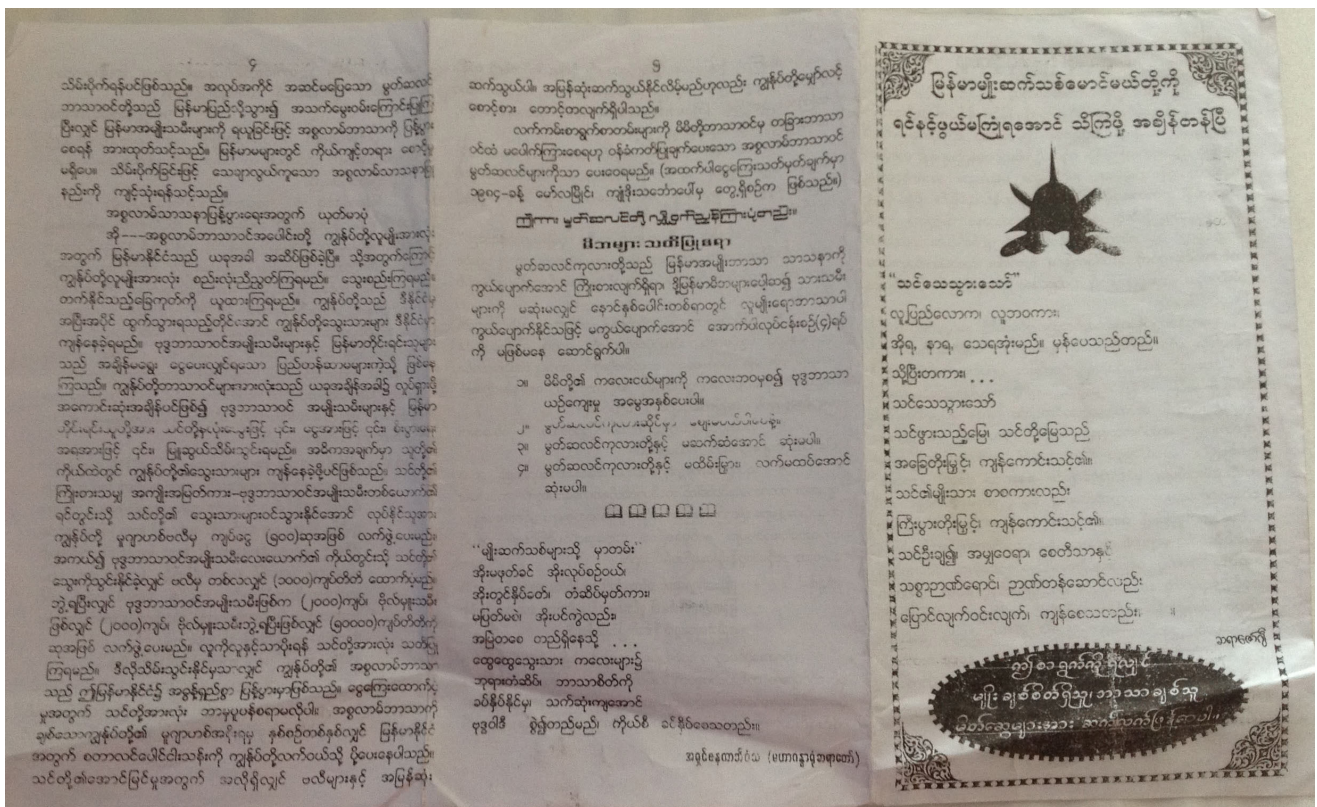 ၄
သိမ်းပိုက်ရန်ပင်ဖြစ်သည်။ အလုပ်အကိုင် အဆင်မပြေသော မွတ်ဆလင်
ဘာသာဝင်တို့သည် မြန်မာပြည်သို့သွား၍ အသက်မွေးဝမ်းကြောင်းပြုကြ
ပြီးလျှင် မြန်မာအမျိုးသမီးများကို ရယူခြင်းဖြင့် အစ္စလာမ်ဘာသာကို ပြန့်ပွား
စေရန် အားထုတ်သင့်သည်။ မြန်မာမများတွင် ကိုယ်ကျင့်တရား စောင့်မှု
မရှိပေ။ သိမ်းပိုက်ခြင်းဖြင့် သေချာလွယ်ကူသော အစ္စလာမ်သာသနာပြု
နည်းကို ကျင့်သုံးရန်သင့်သည်။
အစ္စလာမ်သာသနာပြန့်ပွားရေးအတွက် ယုတ်မာပုံ
အို---အစ္စလာမ်ဘာသာဝင်အပေါင်းတို့ ကျွန်ုပ်တို့လူမျိုးအားလုံး
အတွက် မြန်မာနိုင်ငံသည် ယခုအခါ အဆိပ်ဖြစ်ခဲ့ပြီ။ သို့အတွက်ကြောင့်
ကျွန်ုပ်တို့လူမျိုးအားလုံး စည်းလုံးညီညွတ်ကြရမည်။ သွေးစည်းကြရမည်။
တက်နိုင်သည့်ခြေကုတ်ကို ယူထားကြရမည်။ ကျွန်ုပ်တို့သည် ဒီနိုင်ငံမှ
အပြီးအပိုင် ထွက်သွားရသည့်တိုင်အောင် ကျွန်ုပ်တို့သွေးသားများ ဒီနိုင်ငံမှာ
ကျန်နေခဲ့ရမည်။ ဗုဒ္ဓဘာသာဝင်အမျိုးသမီးများနှင့် မြန်မာတိုင်းရင်းသူများ
သည် အချိန်မရွေး ငွေပေးလျှင်ရသော ပြည်တန်ဆာများကဲ့သို့ ဖြစ်နေ
ကြသည်။ ကျွန်ုပ်တို့ဘာသာဝင်များအားလုံးသည် ယခုအချိန်အခါ၌ လှုပ်ရှားဖို့
အကောင်းဆုံးအချိန်ပင်ဖြစ်၍ ဗုဒ္ဓဘာသာဝင် အမျိုးသမီးများနှင့် မြန်မာ
တိုင်းရင်းသူတို့အား သင်တို့နှလုံးသွေးဖြင့် ၎င်း၊ ငွေအားဖြင့် ၎င်း၊
အရာအားဖြင့် ၎င်း၊ မြူဆွယ်သိမ်းသွင်းရမည်။ အဓိကအချက်မှာ သူတို့၏
ကိုယ်ထဲတွင် ကျွန်ုပ်တို့၏သွေးသားများ ကျန်နေခဲ့ဖို့ပင်ဖြစ်သည်။ သင်တို့၏
ကြိုးစားသမျှ အကျိုးအမြတ်ကား-ဗုဒ္ဓဘာသာဝင်အမျိုးသမီးတစ်ယောက်၏
ရင်တွင်းသို့ သင်တို့၏ သွေးသားများဝင်သွားနိုင်အောင် လုပ်နိုင်သူအား
ကျွန်ုပ်တို့ မူဂျာဟစ်ဗလီမှ ကျပ်ငွေ (၅၀၀)ဆုအဖြစ် လက်ဖွဲ့ပေးမည်။
အကယ်၍ ဗုဒ္ဓဘာသာဝင်အမျိုးသမီးလေးယောက်၏ ကိုယ်တွင်းသို့ သင်တို့၏
သွေးကိုသွင်းနိုင်ခဲ့လျှင် ဗလီမှ တစ်လလျှင် (၁၀၀၀)ကျပ်တိတိ ထောက်ပံ့မည်။
ဘွဲ့ရပြီးလျှင် ဗုဒ္ဓဘာသာဝင်အမျိုးသမီးဖြစ်က (၂၀၀၀)ကျပ်၊ ဗိုလ်မှူးသမီး
ဖြစ်လျှင် (၂၀၀၀)ကျပ်၊ ဗိုလ်မှူးသမီးဘွဲ့ရပြီးဖြစ်လျှင် (၅၀၀၀၀)ကျပ်တိတိကို
ဆုအဖြစ် လက်ဖွဲ့ပေးမည်။ လူကိုလူနှင့်သာပိုးရန် သင်တို့အားလုံး သတ်ပြု
ကြရမည်။ ဒီလိုသိမ်းသွင်းနိုင်မှသာလျှင် ကျွန်ုပ်တို့၏ အစ္စလာမ်ဘာသာ
သည် ဤမြန်မာနိုင်ငံ၌ အခွန့်ရှည်စွာ ပြန့်ပွားမှာဖြစ်သည်။ ငွေကြေးထောက်ပံ့
မှုအတွက် သင်တို့အားလုံး ဘာမှပူပန်စရာမလိုပါ။ အစ္စလာမ်ဘာသာကို
ချစ်သောကျွန်ုပ်တို့၏ မူဂျာဟစ်အစိုးရမှ နှစ်စဉ်တစ်နှစ်လျှင် မြန်မာနိုင်ငံ
အတွက် စတာလင်ပေါင်ငါးသန်းကို ကျွန်ုပ်တို့လက်ဝယ်သို့ ပို့ပေးနေပါသည်။
သင်တို့၏အောင်မြင်မှုအတွက် အလိုရှိလျှင် ဗလီများနှင့် အမြန်ဆုံး
၅
ဆက်သွယ်ပါ။ အမြန်ဆုံးဆက်သွယ်နိုင်လိမ့်မည်ဟုလည်း ကျွန်ုပ်တို့မျှော်လင့်
စောင့်စား တောင့်တလျက်ရှိပါသည်။
လက်ကမ်းစာရွက်စာတမ်းများကို မိမိတို့ဘာသာဝင်မှ တခြားဘာသာ
ဝင်ထံ မပေါက်ကြားစေရဟု ဝန်ခံကတိပြုချက်ပေးသော အစ္စလာမ်ဘာသာဝင်
မွတ်ဆလင်များကိုသာ ပေးဝေရမည်။ (အထက်ပါငွေကြေးသတ်မှတ်ချက်မှာ
၁၉၈၄-ခန့် မော်လမြိုင်၊ ကျုံဒိုးသင်္ဘောပေါ်မှ တွေ့ရှိစဉ်က ဖြစ်သည်။)
ဤကား မွတ်ဆလင်တို့ လှို့ဝှက်ညွှန်ကြားပုံတည်း။
မိဘများ သတိပြုစရာ
မွတ်ဆလင်ကုလားတို့သည် မြန်မာအမျိုးဘာသာ သာသနာကို
ကွယ်ပျောက်အောင် ကြိုးစားလျက်ရှိရာ၊ ဒို့မြန်မာမိဘများပေါ့ဆ၍ သားသမီး
များကို မဆုံးမလျှင် နောင်နှစ်ပေါင်းတစ်ရာတွင် လူမျိုးရောဘာသာပါ
ကွယ်ပျောက်နိုင်သဖြင့် မကွယ်ပျောက်အောင် အောက်ပါလုပ်ငန်းစဉ်(၄)ရပ်
ကို မဖြစ်မနေ ဆောင်ရွက်ပါ။
၁။ မိမိတို့၏ ကလေးငယ်များကို ကလေးဘဝမှစ၍ ဗုဒ္ဓဘာသာ
ယဉ်ကျေးမှု အမွေအနှစ်ပေးပါ။
၂။ မွတ်ဆလင်ကုလားဆိုင်မှာ
၃။ မွတ်ဆလင်ကုလားတို့နှင့် မဆက်ဆံအောင် ဆုံးမပါ။
၄။ မွတ်ဆလင်ကုလားတို့နှင့် မထိမ်းမြား၊ လက်မထပ်အောင်
ဆုံးမပါ။
"မျိုးဆက်သစ်များသို့ မှာတမ်း"
အိုးမဖုတ်ခင် အိုးလုပ်စဉ်ဝယ်၊
အိုးတွင်နှိပ်ခတ်၊ တံဆိပ်မှတ်ကား၊
မပြတ်မစဲ၊ အိုးပင်ကွဲလည်း၊
အမြဲတစေ တည်ရှိနေသို့ ...
ထွေထွေသွေးသား ကလေးများ၌
ဘုရားတံဆိပ်၊ ဘာသာစိတ်ကို
ခပ်နှိပ်နိုင်မှ၊ သက်ဆုံးကျအောင်
ဗုဒ္ဓဝါဒီ စွဲ၍တည်မည်၊ ကိုယ်စီ ခင်နှိပ်စေသတည်း။
အရှင်ဇနကာဘိဝံသ (မဟာဂန္ဓာရုံဆရာတော်)
မြန်မာမျိုးဆက်သစ်မောင်မယ်တို့ကို
ရင်နင့်ဖွယ်မကြုံရအောင် သိကြဖို့ အချိန်တန်ပြီ
"သင်သေသွားသော်"
လူ့ပြည်လောက၊ လူ့ဘဝကား၊
အိုရ၊ နာရ၊ သေရအုံးမည်။ မှန်ပေသည်တည်။
သို့ပြီးတကား၊ ...
သင်သေသွားသော်
သင်ဖွားသည့်မြေ၊ သင်တို့မြေသည်
အခြေတိုးမြှင့်၊ ကျန်ကောင်းသင့်၏။
သင်၏မျိုးသား စာစကားလည်း
ကြီးပွားတိုးမြှင့်၊ ကျန်ကောင်းသင့်၏။
သင်ဦးချ၍ အမျှဝေရာ၊ စေတီသာနှင့်
သစ္စာဉာဏ်ရောင်၊ ဉာဏ်တန်ဆောင်လည်း
ပြောင်လျက်ဝင်းလျက်၊ ကျန်စေသတည်း၊ ။
ဆရာဇော်ဂျီ
ဤစာရွက်ကိုရရှိလျှင်
မျိုးချစ်စိတ်ရှိသူ၊ ဘာသာချစ်သူ
မိတ်ဆွေများအား ဆက်လက်ဖြန့်ဝေပါ။